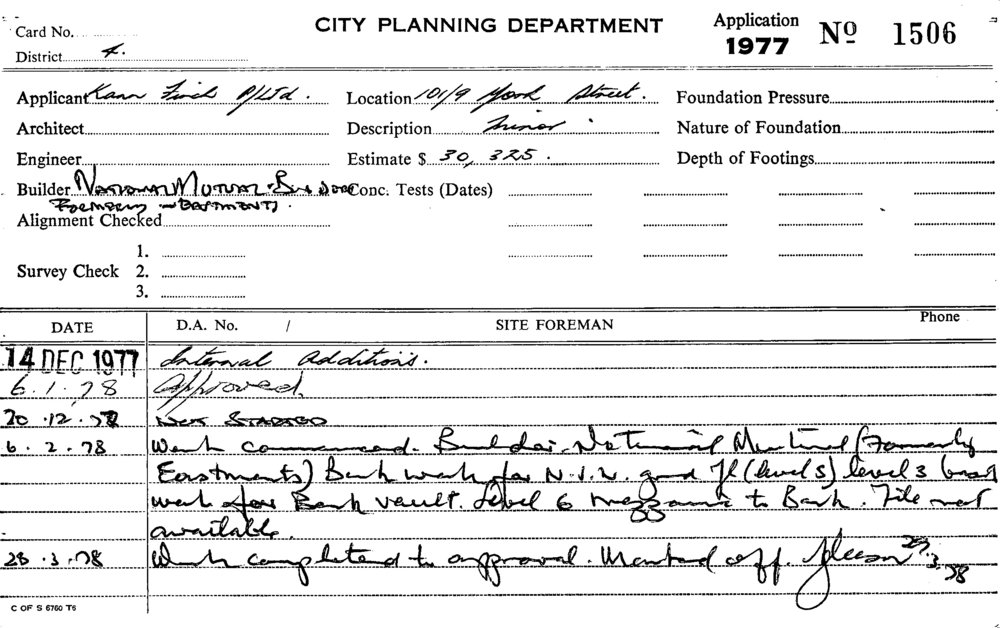 CITY PLANNING DEPARTMENT
Application 1977 Nº 1506
Card No.
District 4.
Applicant Kann Finch P/LTD. Location 101/9 York Street. Foundation Pressure
Architect Description Minor Nature of Foundation
Engineer Estimate $ 30,325. Depth of Footings
Builder NATIONAL MUTUAL Conc. Tests (Dates)
FORMERLY
Alignment Checked
1.
Survey Check 2.
3.
DATE D.A. No. / SITE FOREMAN Phone
14 DEC 1977 Internal Additions.
6.1.78 Approved.
20.12. NOT STARTED
6.2.78 Work commenced. Builder National Mutual (Formerly
) Bank work for N.S.W. grnd fl (level 5) level 3
work for Bank vault. Level 6 mezzanine to Bank. File not
available.
28.3.78 Work completed to approval. Marked off. Gleeson 29.3.78
C OF S 6760 T6